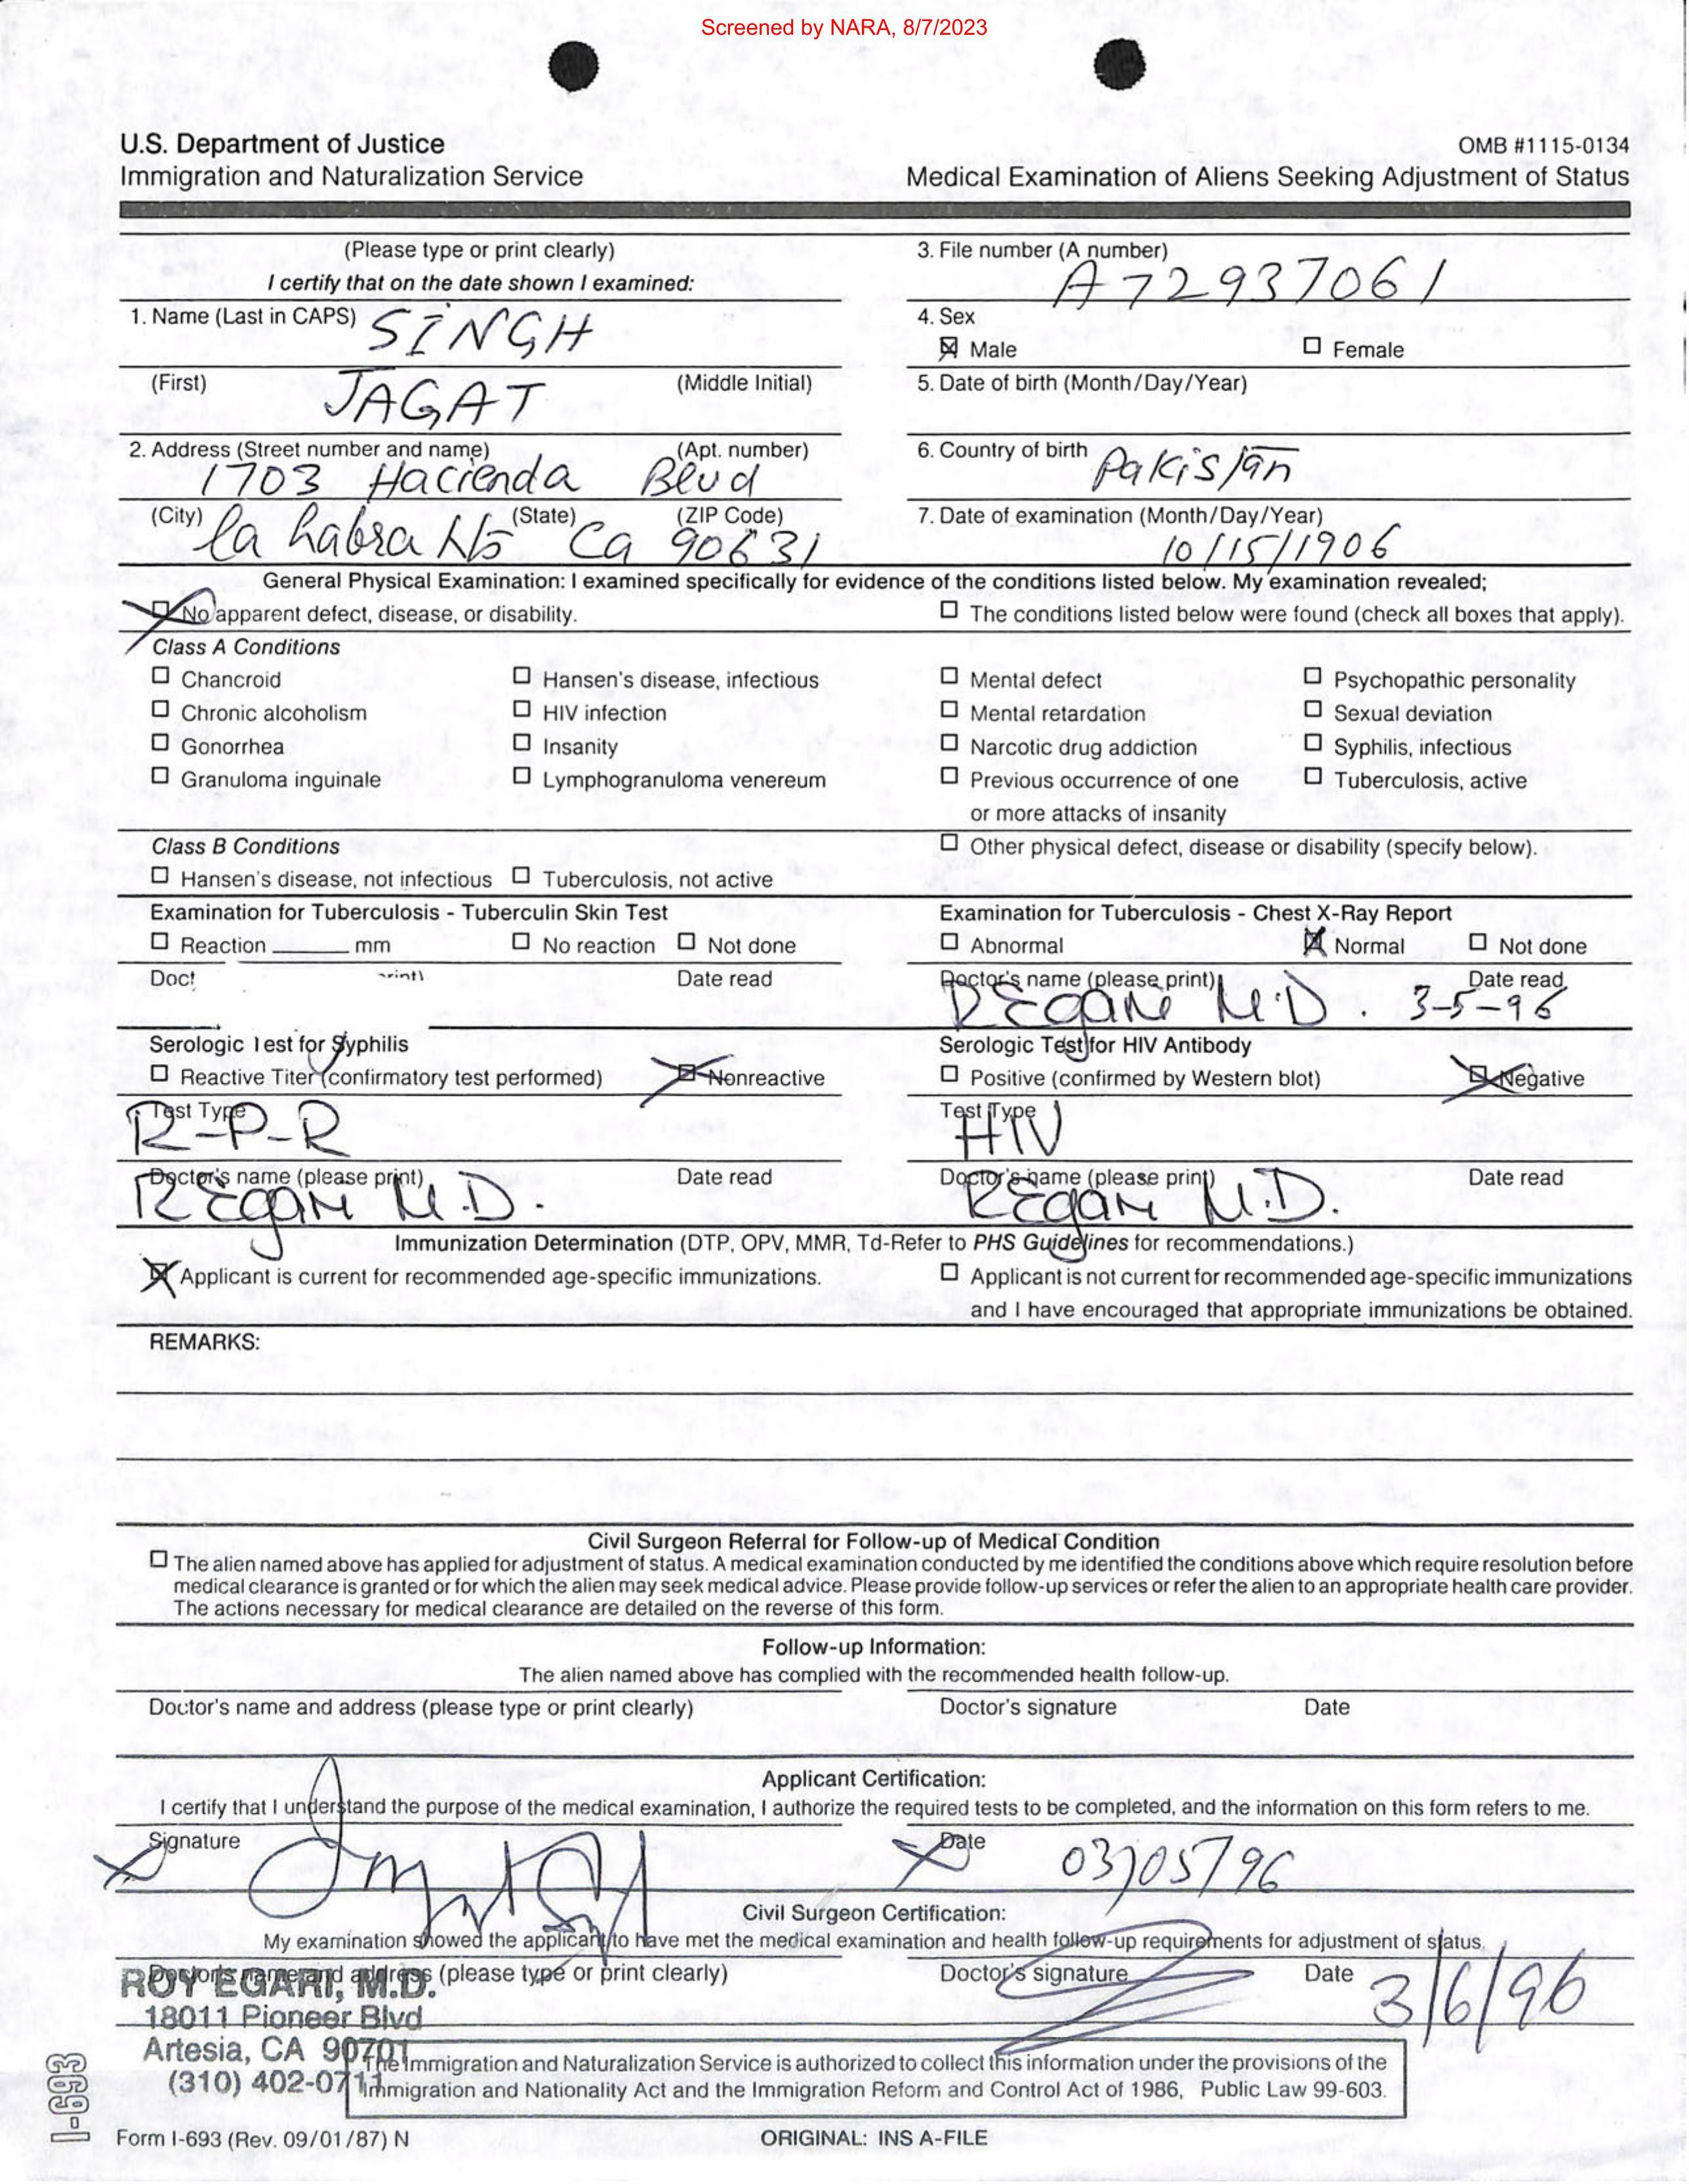 Screened by NARA, 8/7/2023
U.S. Department of Justice
Immigration and Naturalization Service
OMB #1115-0134
Medical Examination of Aliens Seeking Adjustment of Status
(Please type or print clearly)
I certify that on the date shown I examined:
3. File number (A number)
A72937061
1. Name (Last in CAPS) SINGH
4. Sex
☒ Male ☐ Female
(First) JAGAT (Middle Initial)
5. Date of birth (Month/Day/Year)
2. Address (Street number and name) (Apt. number)
1703 Hacienda Blvd
6. Country of birth Pakistan
(City) la habra Hts (State) Ca (ZIP Code) 90631
7. Date of examination (Month/Day/Year)
10/15/1906
General Physical Examination: I examined specifically for evidence of the conditions listed below. My examination revealed;
☒ No apparent defect, disease, or disability. ☐ The conditions listed below were found (check all boxes that apply).
Class A Conditions
☐ Chancroid ☐ Hansen's disease, infectious ☐ Mental defect ☐ Psychopathic personality
☐ Chronic alcoholism ☐ HIV infection ☐ Mental retardation ☐ Sexual deviation
☐ Gonorrhea ☐ Insanity ☐ Narcotic drug addiction ☐ Syphilis, infectious
☐ Granuloma inguinale ☐ Lymphogranuloma venereum ☐ Previous occurrence of one ☐ Tuberculosis, active
or more attacks of insanity
Class B Conditions ☐ Other physical defect, disease or disability (specify below).
☐ Hansen's disease, not infectious ☐ Tuberculosis, not active
Examination for Tuberculosis - Tuberculin Skin Test
☐ Reaction ______ mm ☐ No reaction ☐ Not done
Date read
Examination for Tuberculosis - Chest X-Ray Report
☐ Abnormal ☒ Normal ☐ Not done
Doctor's name (please print) Date read
R Egari M.D. 3-5-96
Serologic Test for Syphilis
☐ Reactive Titer (confirmatory test performed) ☒ Nonreactive
Test Type
R-P-R
Doctor's name (please print) Date read
R Egari M.D.
Serologic Test for HIV Antibody
☐ Positive (confirmed by Western blot) ☒ Negative
Test Type
HIV
Doctor's name (please print) Date read
R Egari M.D.
Immunization Determination (DTP, OPV, MMR, Td-Refer to PHS Guidelines for recommendations.)
☒ Applicant is current for recommended age-specific immunizations. ☐ Applicant is not current for recommended age-specific immunizations
and I have encouraged that appropriate immunizations be obtained.
REMARKS:
Civil Surgeon Referral for Follow-up of Medical Condition
☐ The alien named above has applied for adjustment of status. A medical examination conducted by me identified the conditions above which require resolution before
medical clearance is granted or for which the alien may seek medical advice. Please provide follow-up services or refer the alien to an appropriate health care provider.
The actions necessary for medical clearance are detailed on the reverse of this form.
Follow-up Information:
The alien named above has complied with the recommended health follow-up.
Doctor's name and address (please type or print clearly) Doctor's signature Date
Applicant Certification:
I certify that I understand the purpose of the medical examination, I authorize the required tests to be completed, and the information on this form refers to me.
Signature Date 03/05/96
Civil Surgeon Certification:
My examination showed the applicant to have met the medical examination and health follow-up requirements for adjustment of status.
Doctor's name and address (please type or print clearly) Doctor's signature Date 3/6/96
ROY EGARI, M.D.
18011 Pioneer Blvd
Artesia, CA 90701
(310) 402-0711
The Immigration and Naturalization Service is authorized to collect this information under the provisions of the
Immigration and Nationality Act and the Immigration Reform and Control Act of 1986, Public Law 99-603.
I-693
Form I-693 (Rev. 09/01/87) N
ORIGINAL: INS A-FILE